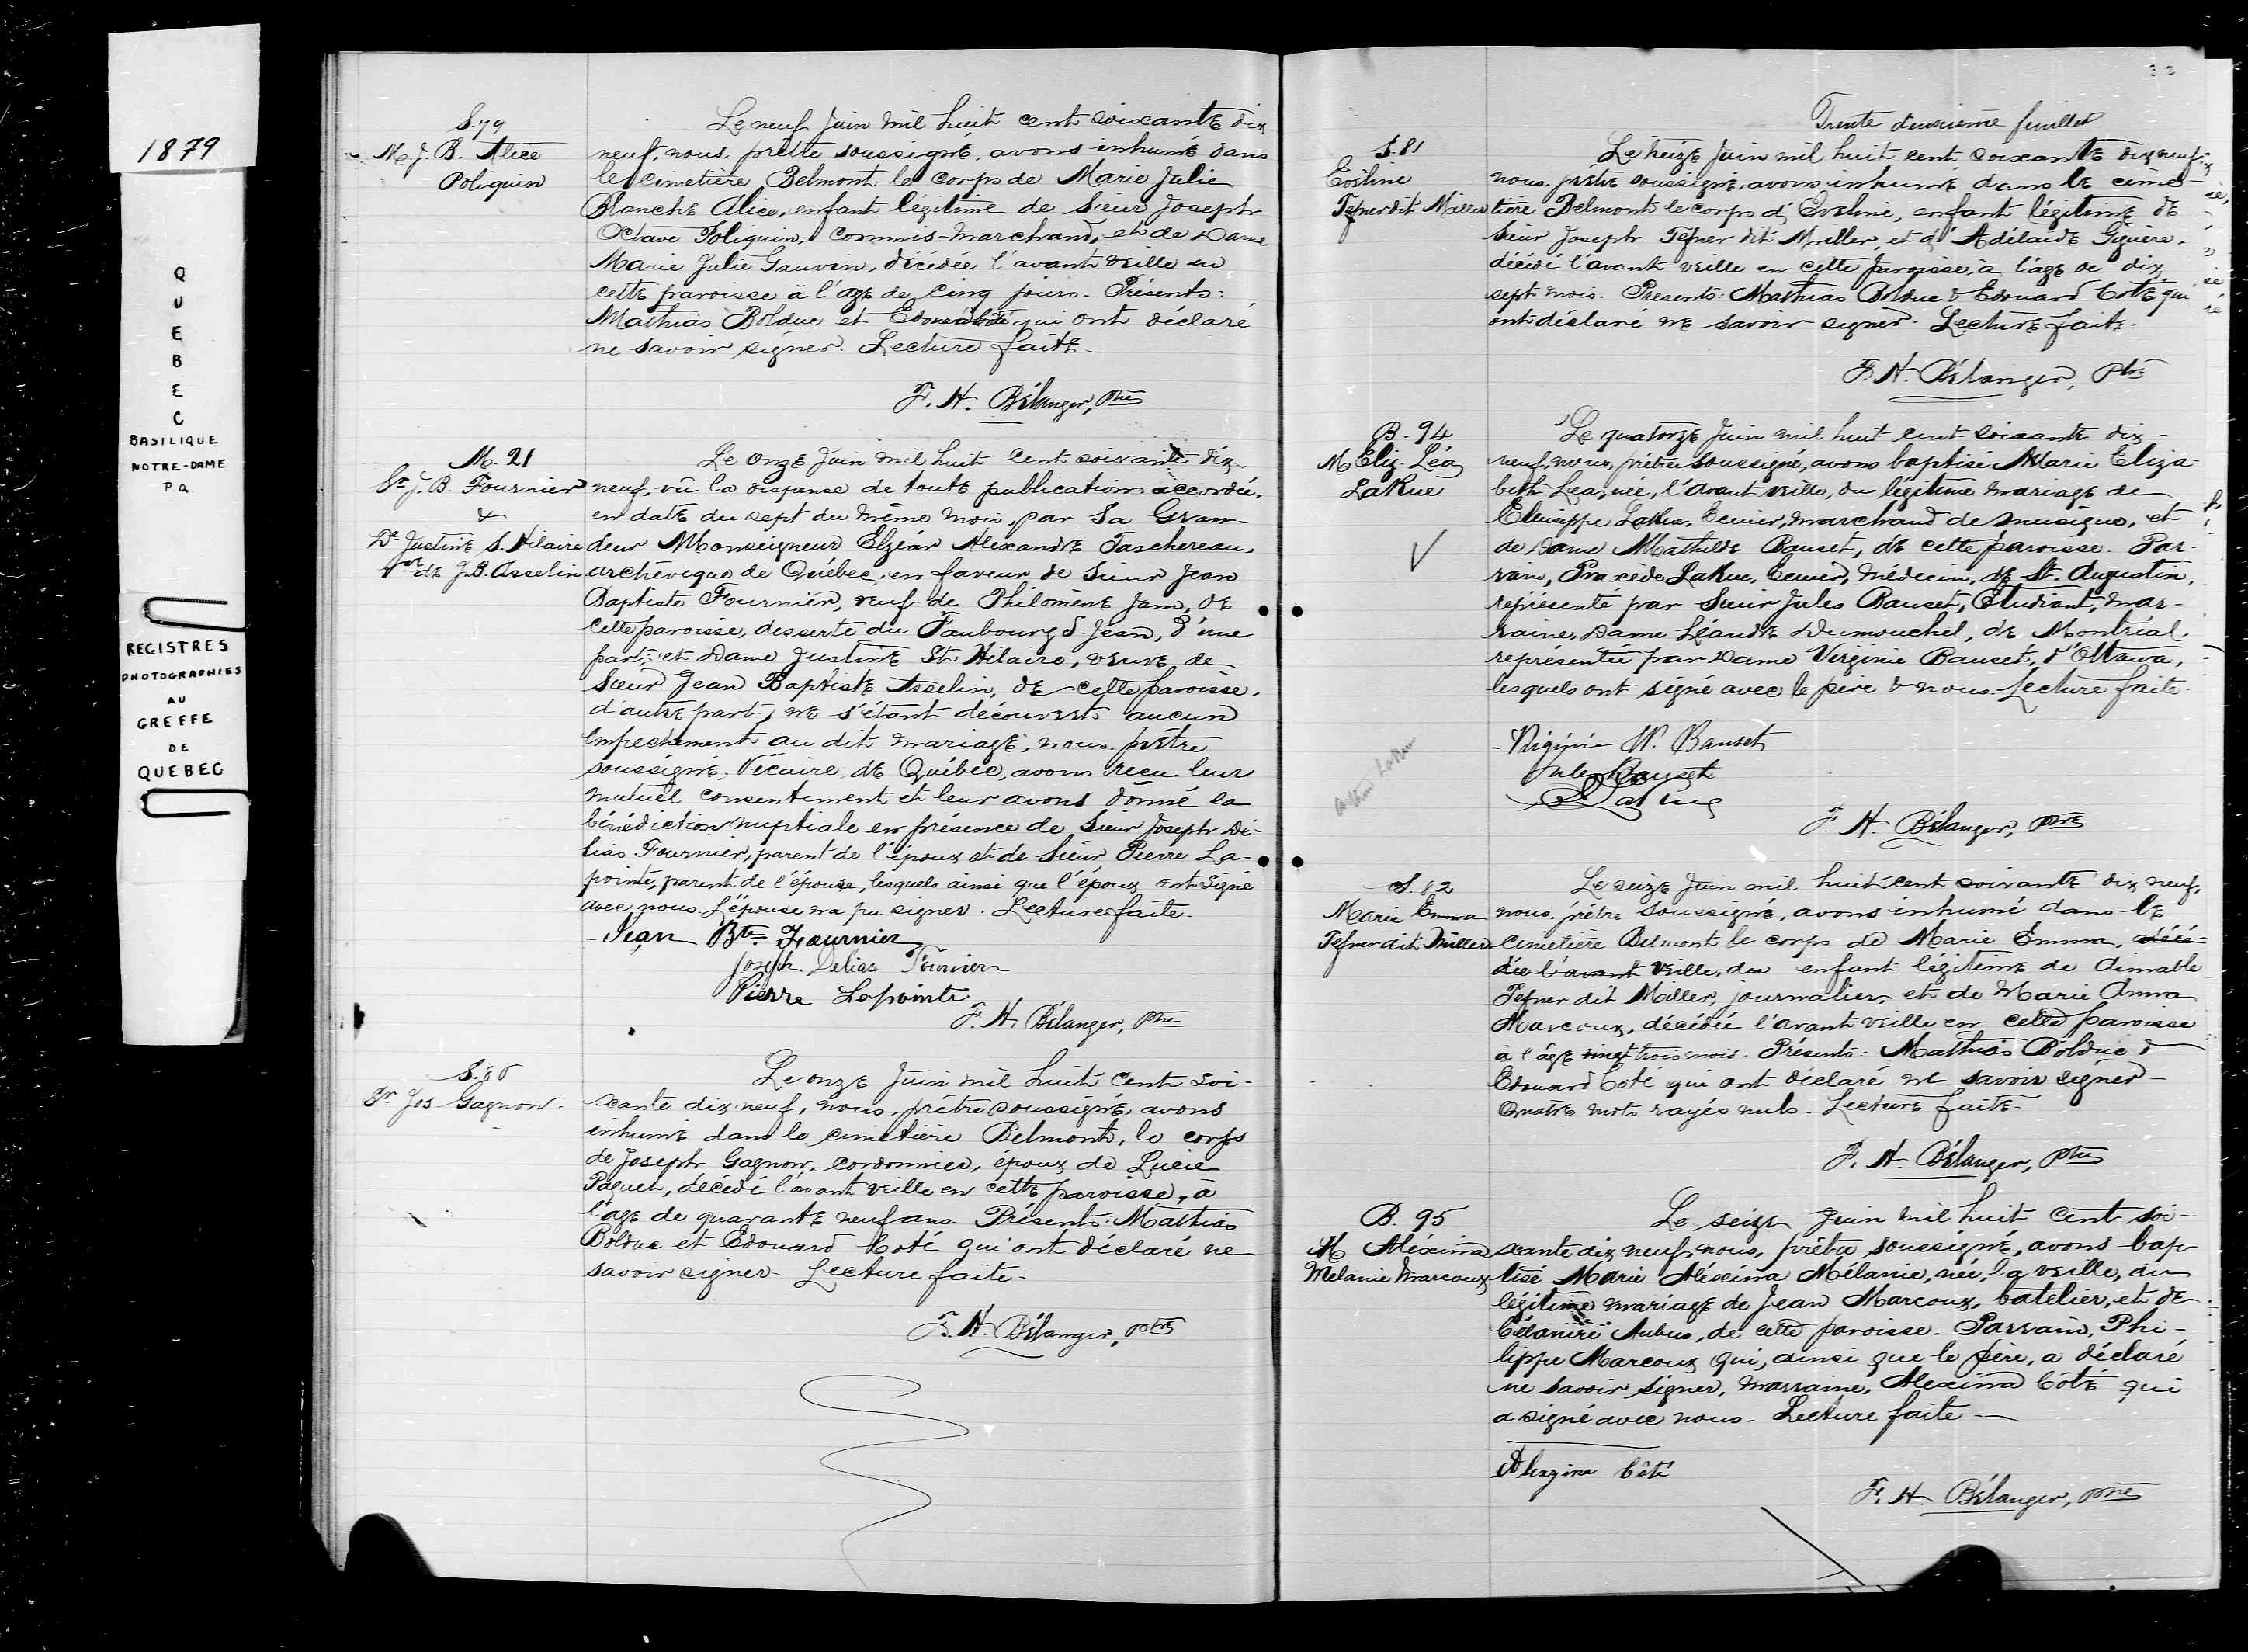 1879
QUEBEC
BASILIQUE
NOTRE-DAME
P Q
REGISTRES
PHOTOGRAPHIES
AU
GREFFE
DE
QUEBEC
S. 79
M. J. B. Alice
Poliquin
Le neuf Juin mil huit cent soixante dix
neuf, nous, prêtre soussigné, avons inhumé dans
le cimetière Belmont le corps de Marie Julie
Blanche Alice, enfant légitime de Sieur Joseph
Octave Poliquin, commis-marchand, et de Dame
Marie Julie Gauvin, décédée l'avant veille en
cette paroisse à l'age de cinq jours. Présents:
Mathias Bolduc et Edouard Coté qui ont déclaré
ne savoir signer. Lecture faite-
F. H. Bélanger, Ptre
M. 21
Sr J. B. Fournier
&
De Justine S. Hilaire
Vve de J. B. Asselin
Le onze Juin mil huit cent soixante dix-
neuf, vû la dispense de toute publication accordée,
en date du sept du même mois, par Sa Gran-
deur Monseigneur Elzéar Alexandre Taschereau,
archevêque de Québec, en faveur de Sieur Jean
Baptiste Fournier, veuf de Philomène Jam, de
cette paroisse, desserte du Faubourg S. Jean, d'une
part; et Dame Justine St Hilaire, veuve de
Sieur Jean Baptiste Asselin, de cette paroisse,
d'autre part, ne s'étant découvert aucun
empechement au dit mariage, nous, prêtre
soussigné, Vicaire de Québec, avons reçu leur
mutuel consentement et leur avons donné la
bénédiction nuptiale en présence de Sieur Joseph Dé-
lias Fournier, parent de l'époux et de Sieur Pierre La-
pointe, parent de l'épouse, lesquels ainsi que l'époux ont signé
avec nous. L'épouse n'a pu signer. Lecture faite.
Jean Bte Fournier
Joseph Delias Fournier
Pierre Lapointe
F. H. Bélanger, Ptre
S. 80
Sr Jos Gagnon
Le onze Juin mil huit cent soi-
xante dix-neuf, nous, prêtre soussigné, avons
inhumé dans le cimetière Belmont, le corps
de Joseph Gagnon, cordonnier, époux de Lucie
Paquet, décédé l'avant veille en cette paroisse, à
l'age de quarante neuf ans. Présents: Mathias
Bolduc et Edouard Coté qui ont déclaré ne
savoir signer. Lecture faite.
F. H. Bélanger, ptre
32
Trente deuxième feuillet
S. 81
Eveline
Tefner dit Miller
Le treize Juin mil huit cent soixante dix neuf,
nous, prêtre soussigné, avons inhumé dans le cime-
tière Belmont le corps d'Eveline, enfant légitime de
Sieur Joseph Tefner dit Miller, et d'Adélaide Giguère,
décédé l'avant veille en cette paroisse, à l'age de dix
sept mois. Présents: Mathias Bolduc & Edouard Coté qui
ont déclaré ne savoir signer. Lecture faite.
F. H. Bélanger, Ptre
B. 94
M Eliz. Léa
LaRue
Le quatorze Juin mil huit cent soixante dix-
neuf, nous, prêtre soussigné, avons baptisé Marie Eliza-
beth Lea, née, l'avant veille, du légitime mariage de
Eleusippe LaRue, Ecuier, marchand de musique, et
de Dame Mathilde Bauset, de cette paroisse. Par-
rain, Praxède LaRue, Ecuier, Médecin, de St. Augustin,
représenté par Sieur Jules Bauset, Etudiant, mar-
raine, Dame Léandre Dumouchel, de Montréal
représentée par Dame Virginie Bauset, d'Ottawa,
lesquels ont signé avec le père & nous. Lecture faite.
Virginie W. Bauset
Jules Bauset
LaRue
F. H. Bélanger, ptre
S. 82
Marie Emma
Tefner dit Miller
Le seize Juin mil huit cent soixante dix neuf,
nous, prêtre soussigné, avons inhumé dans le
cimetière Belmont le corps de Marie Emma, décé-
dée l'avant veille, du enfant légitime de Aimable
Tefner dit Miller, journalier, et de Marie Anna
Marcoux, décédée l'avant veille en cette paroisse
à l'âge vingt trois mois. Présents: Mathias Bolduc &
Edouard Coté qui ont déclaré ne savoir signer-
Quatre mots rayés nuls. Lecture faite.
F. H. Bélanger, Ptre
B. 95
M Aléxina
Melanie Marcoux
Le seize Juin mil huit cent soi-
xante dix neuf, nous, prêtre soussigné, avons bap-
tisé Marie Aléxina Mélanie, née, la veille, du
légitime mariage de Jean Marcoux, batelier, et de
Célanire Aubus, de cette paroisse. Parrain, Phi-
lippe Marcoux qui, ainsi que le père, a déclaré
ne savoir signer, marraine, Alexina Côté qui
a signé avec nous. Lecture faite—
Alexzina Côté
F. H. Bélanger, ptre